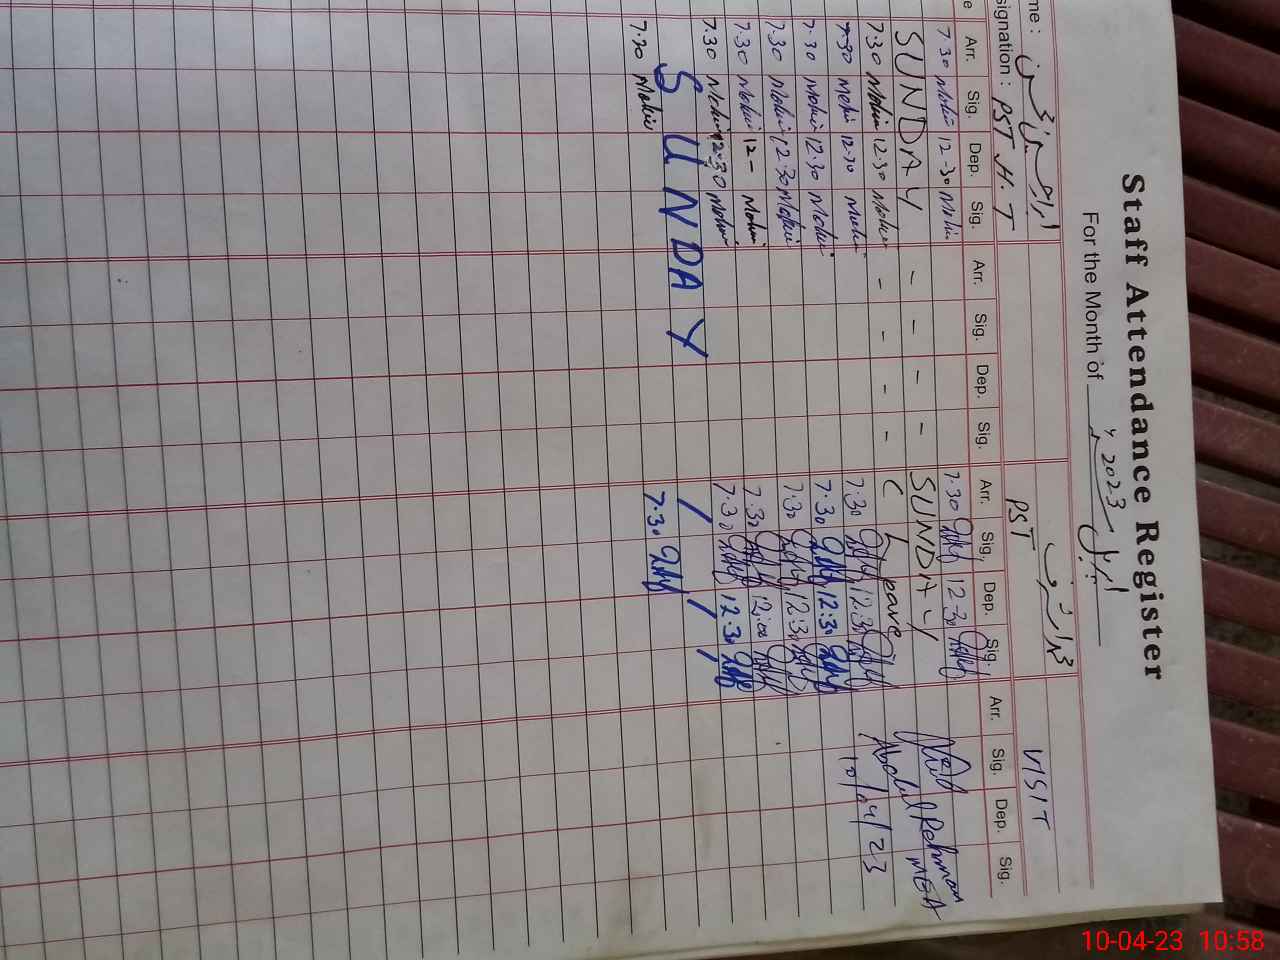 Staff Attendance Register
For the Month of اپریل 2023ء
me :
signation : PST H.T PST VISIT
e Arr. Sig. Dep. Sig. Arr. Sig. Dep. Sig. Arr. Sig. Dep. Sig. Arr. Sig. Dep. Sig.
7.30 Mohin 12-30 Mohin 7.30 12-30
SUNDAY - - - - SUNDAY Abdul Rehman MEA
7.30 Mohin 12.30 Mohin - - - - C Leave 10/04/23
7.30 Mohin 12.30 Mohin 7.30 12.30
7.30 Mohin 12.30 Mohin 7.30 12:30
7.30 Mohin 12.30 Mohin 7.30 12:30
7.30 Mohin 12- Mohin 7.30 12:00
7.30 Mohin 12.30 Mohin 7.30 12.30
SUNDAY / / /
7.30 Mohin 7.30
10-04-23 10:58